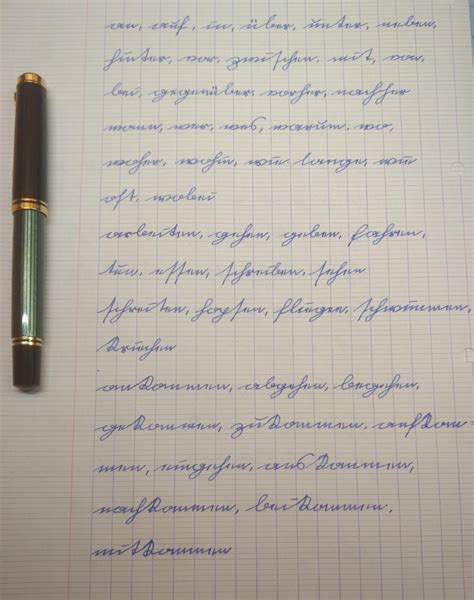 an, auf, in, über, unter, neben,
hinter, vor, zwischen, mit, von,
bei, gegenüber, vorher, nachher
wann, wer, wes, warum, wo,
woher, wohin, wie lange, wie
oft, wobei
arbeiten, gehen, geben, fahren,
tun, essen, schreiben, sehen
schreiten, hopsen, fliegen, schwimmen,
kriechen
ankommen, abgehen, begehen,
gekommen, zukommen, aufkom=
men, eingehen, auskommen,
nachkommen, beikommen,
mitkommen